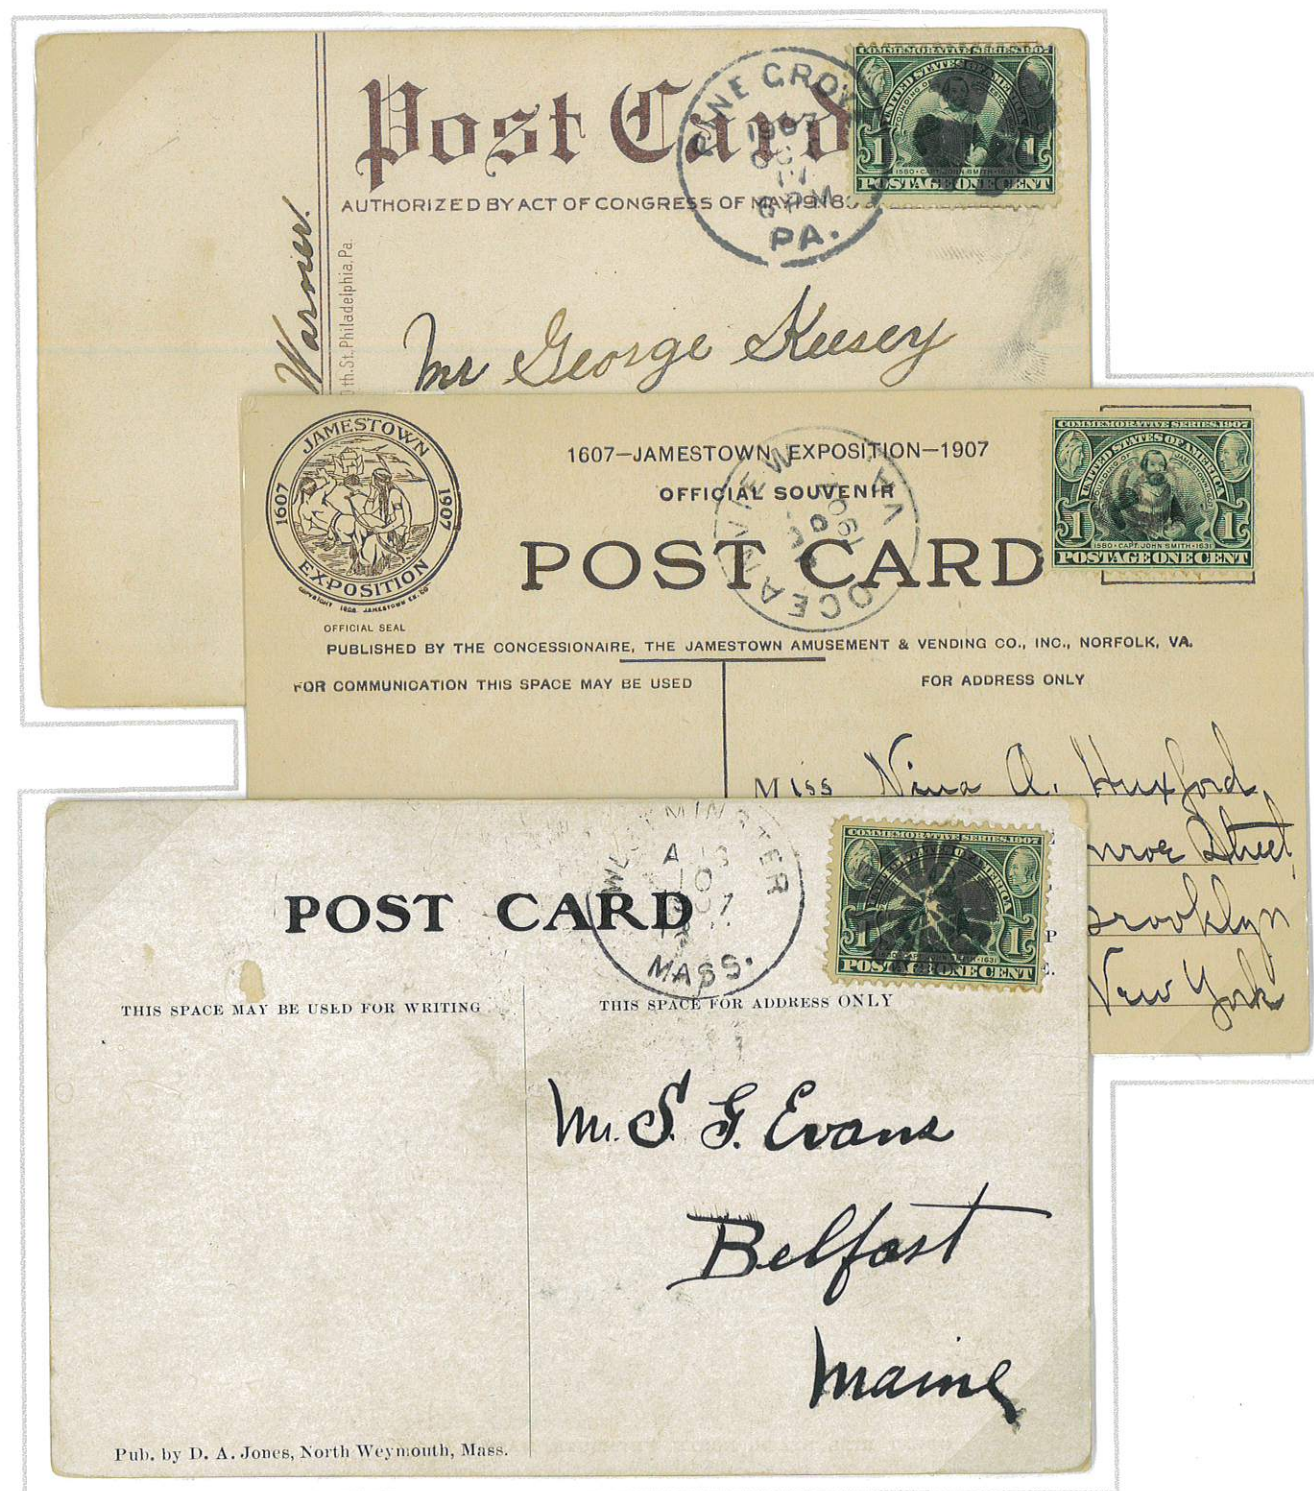 Post Card
AUTHORIZED BY ACT OF CONGRESS OF MAY 19, 189
PINE GROV
1907
OC
11
6 PM
PA.
COMMEMORATIVE SERIES 1907
UNITED STATES OF AMERICA
FOUNDING OF JAMESTOWN
1 1
1580 · CAPT. JOHN SMITH · 1631
POSTAGE ONE CENT
Warner.
th. St. Philadelphia, Pa.
Mr George Keesey
JAMESTOWN
1607 1907
EXPOSITION
COPYRIGHT 1905 JAMESTOWN EX. CO
OFFICIAL SEAL
1607—JAMESTOWN EXPOSITION—1907
OFFICIAL SOUVENIR
POST CARD
OCEAN VIEW VA
1907
COMMEMORATIVE SERIES 1907
UNITED STATES OF AMERICA
FOUNDING OF JAMESTOWN
1 1
1580 · CAPT. JOHN SMITH · 1631
POSTAGE ONE CENT
PUBLISHED BY THE CONCESSIONAIRE, THE JAMESTOWN AMUSEMENT & VENDING CO., INC., NORFOLK, VA.
FOR COMMUNICATION THIS SPACE MAY BE USED
FOR ADDRESS ONLY
Miss Nina A. Huxford
nroe Street,
rooklyn
New York
POST CARD
MINSTER
10
MASS.
COMMEMORATIVE SERIES 1907
1 1
POSTAGE ONE CENT
THIS SPACE MAY BE USED FOR WRITING
THIS SPACE FOR ADDRESS ONLY
Mr. S. G. Evans
Belfast
Maine
Pub. by D. A. Jones, North Weymouth, Mass.